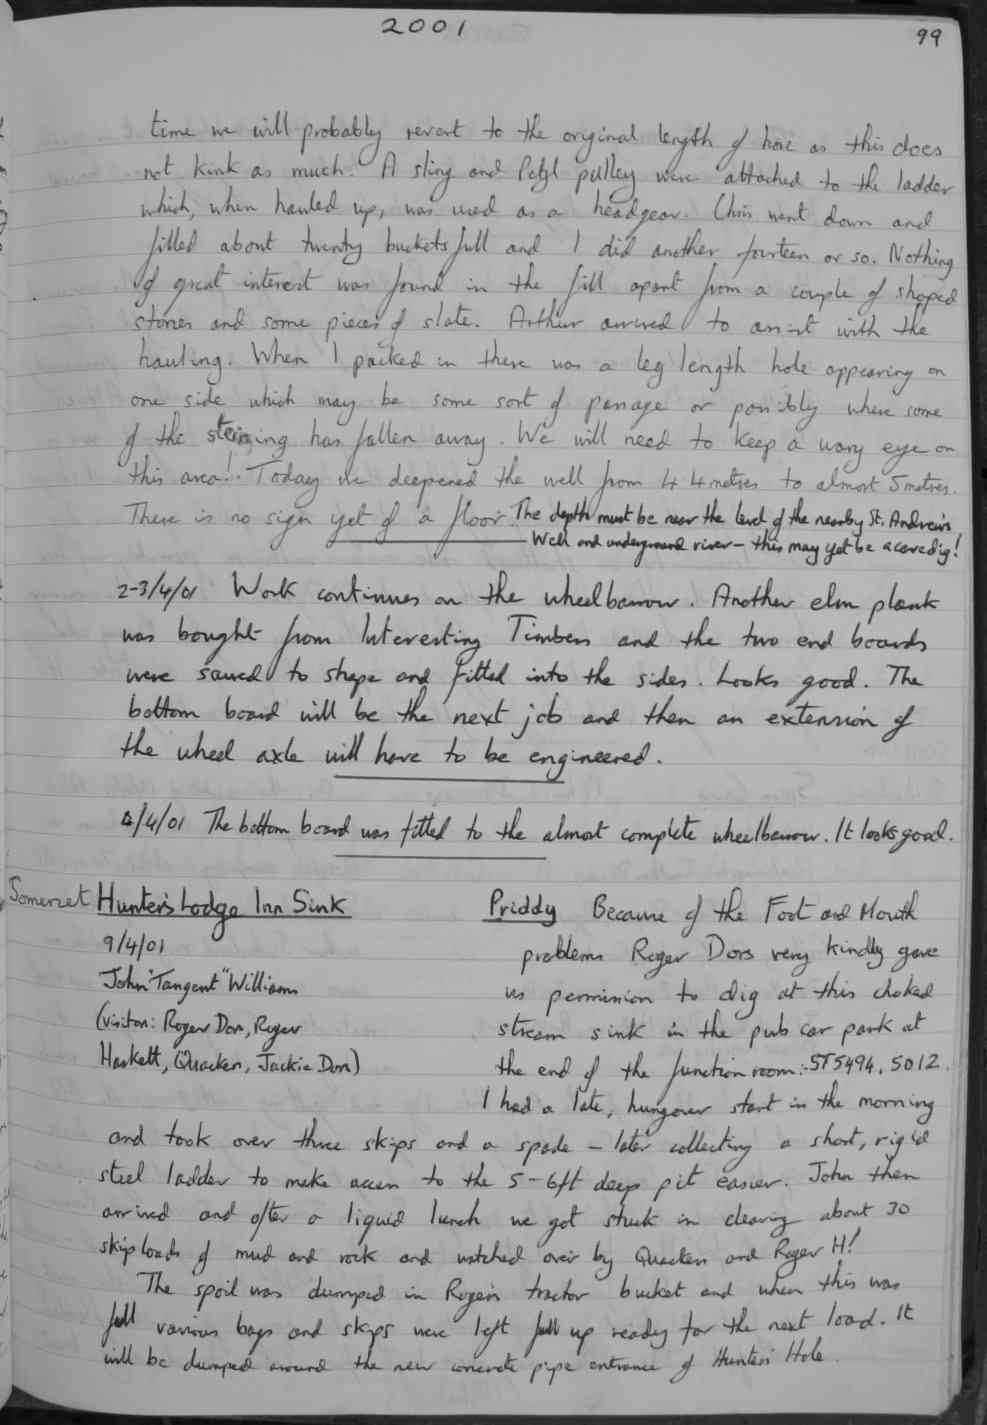 2001
99
time we will probably revert to the original length of hose as this does
not kink as much. A sling and Petzl pulley were attached to the ladder
which, when hauled up, was used as a headgear. Chris went down and
filled about twenty buckets full and I did another fourteen or so. Nothing
of great interest was found in the fill apart from a couple of shaped
stones and some pieces of slate. Arthur arrived to assist with the
hauling. When I packed in there was a leg length hole appearing on
one side which may be some sort of passage or possibly where some
of the steining has fallen away. We will need to keep a wary eye on
this area! Today we deepened the well from 4.4 metres to almost 5 metres.
There is no sign yet of a floor. The depth must be near the level of the nearby St. Andrew's
Well and underground river - this may yet be a cave dig!
2-3/4/01 Work continues on the wheelbarrow. Another elm plank
was bought from Interesting Timbers and the two end boards
were sawed to shape and fitted into the sides. Looks good. The
bottom board will be the next job and then an extension of
the wheel axle will have to be engineered.
4/4/01 The bottom board was fitted to the almost complete wheelbarrow. It looks good.
Somerset Hunter's Lodge Inn Sink Priddy Because of the Foot and Mouth
9/4/01 problems Roger Dors very kindly gave
John "Tangent" Williams us permission to dig at this choked
(visitors: Roger Dors, Roger stream sink in the pub car park at
Haskett, Quackers, Jackie Dors) the end of the function room:- ST5494.5012.
I had a late, hungover start in the morning
and took over three skips and a spade - later collecting a short, rigid
steel ladder to make access to the 5-6ft deep pit easier. John then
arrived and after a liquid lunch we got stuck in clearing about 30
skip loads of mud and rock and watched over by Quackers and Roger H!
The spoil was dumped in Roger's tractor bucket and when this was
full various bags and skips were left full up ready for the next load. It
will be dumped around the new concrete pipe entrance of Hunters' Hole.